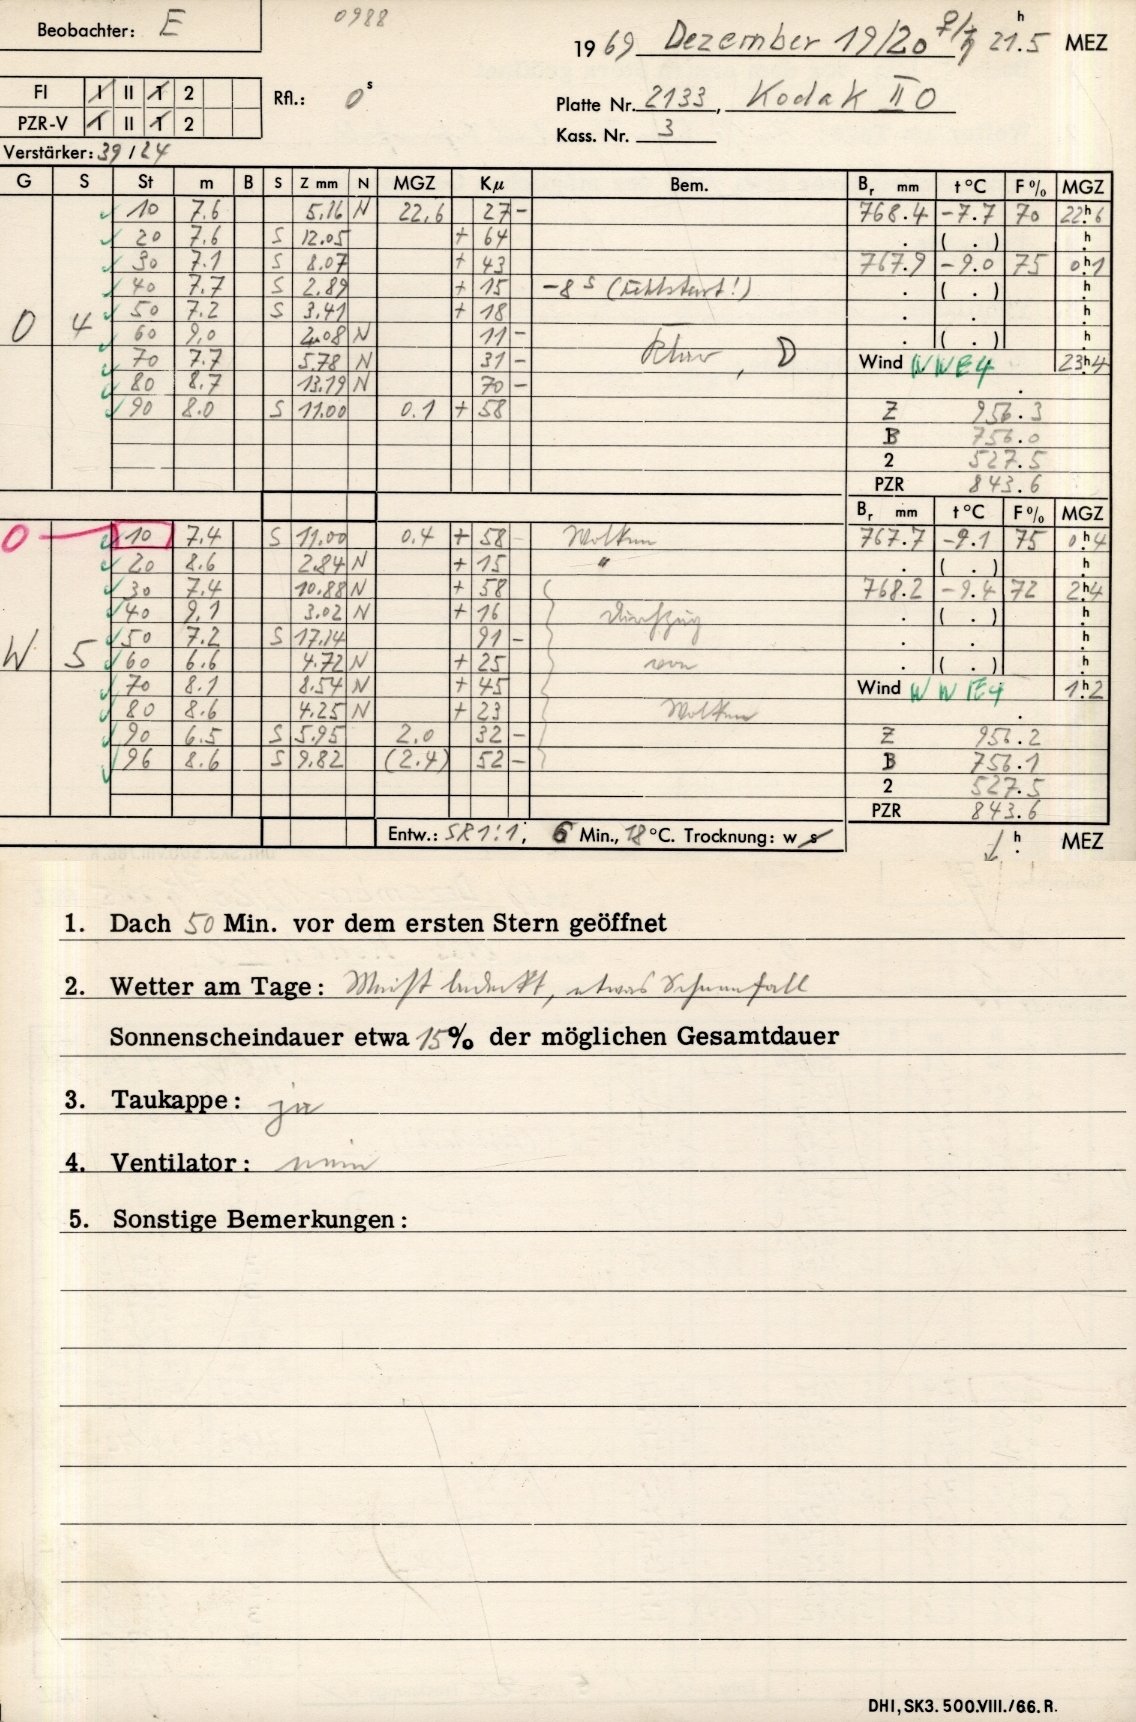 Beobachter: E 0988
1969 Dezember 19/20 ♀/♄ 21h.5 MEZ
FI I II 1 2 Rfl.: 0s
Platte Nr. 2133, Kodak II O
PZR-V 1 II 1 2
Kass. Nr. 3
Verstärker: 39/24
G S St m B S Z mm N MGZ Kμ Bem. Br mm t °C F % MGZ
10 7.6 5.16 N 22.6 27 - 768.4 -7.7 70 22h.6
20 7.6 S 12.05 + 64 . ( . ) h.
30 7.1 S 8.07 + 43 767.9 -9.0 75 0h.1
40 7.7 S 2.89 + 15 -8s (Fehlstart!) . ( . ) h.
50 7.2 S 3.41 + 18 . . h.
O 4 60 9.0 2.08 N 11 - . ( . ) h.
70 7.7 5.78 N 31 - Klar, D Wind NNE4 23h.4
80 8.7 13.19 N 70 - .
90 8.0 S 11.00 0.1 + 58 Z 956.3
B 756.0
2 527.5
PZR 843.6
Br mm t °C F % MGZ
O 10 7.4 S 11.00 0.4 + 58 - Wolken 767.7 -9.1 75 0h.4
20 8.6 2.84 N + 15 " . ( . ) h.
30 7.4 10.88 N + 58 768.2 -9.4 72 2h.4
40 9.1 3.02 N + 16 Durchzug . ( . ) h.
50 7.2 S 17.14 91 - . . h.
W 5 60 6.6 4.72 N + 25 von . ( . ) h.
70 8.1 8.54 N + 45 Wind NNE4 1h.2
80 8.6 4.25 N + 23 Wolken .
90 6.5 S 5.95 2.0 32 - Z 956.2
96 8.6 S 9.82 (2.4) 52 - B 756.1
2 527.5
PZR 843.6
Entw.: SR 1:1, 6 Min., 18 °C. Trocknung: w s h. MEZ
1. Dach 50 Min. vor dem ersten Stern geöffnet
2. Wetter am Tage: Meist bedeckt, etwas Schneefall
Sonnenscheindauer etwa 15% der möglichen Gesamtdauer
3. Taukappe: ja
4. Ventilator: nein
5. Sonstige Bemerkungen:
DHI, SK3. 500.VIII./66. R.